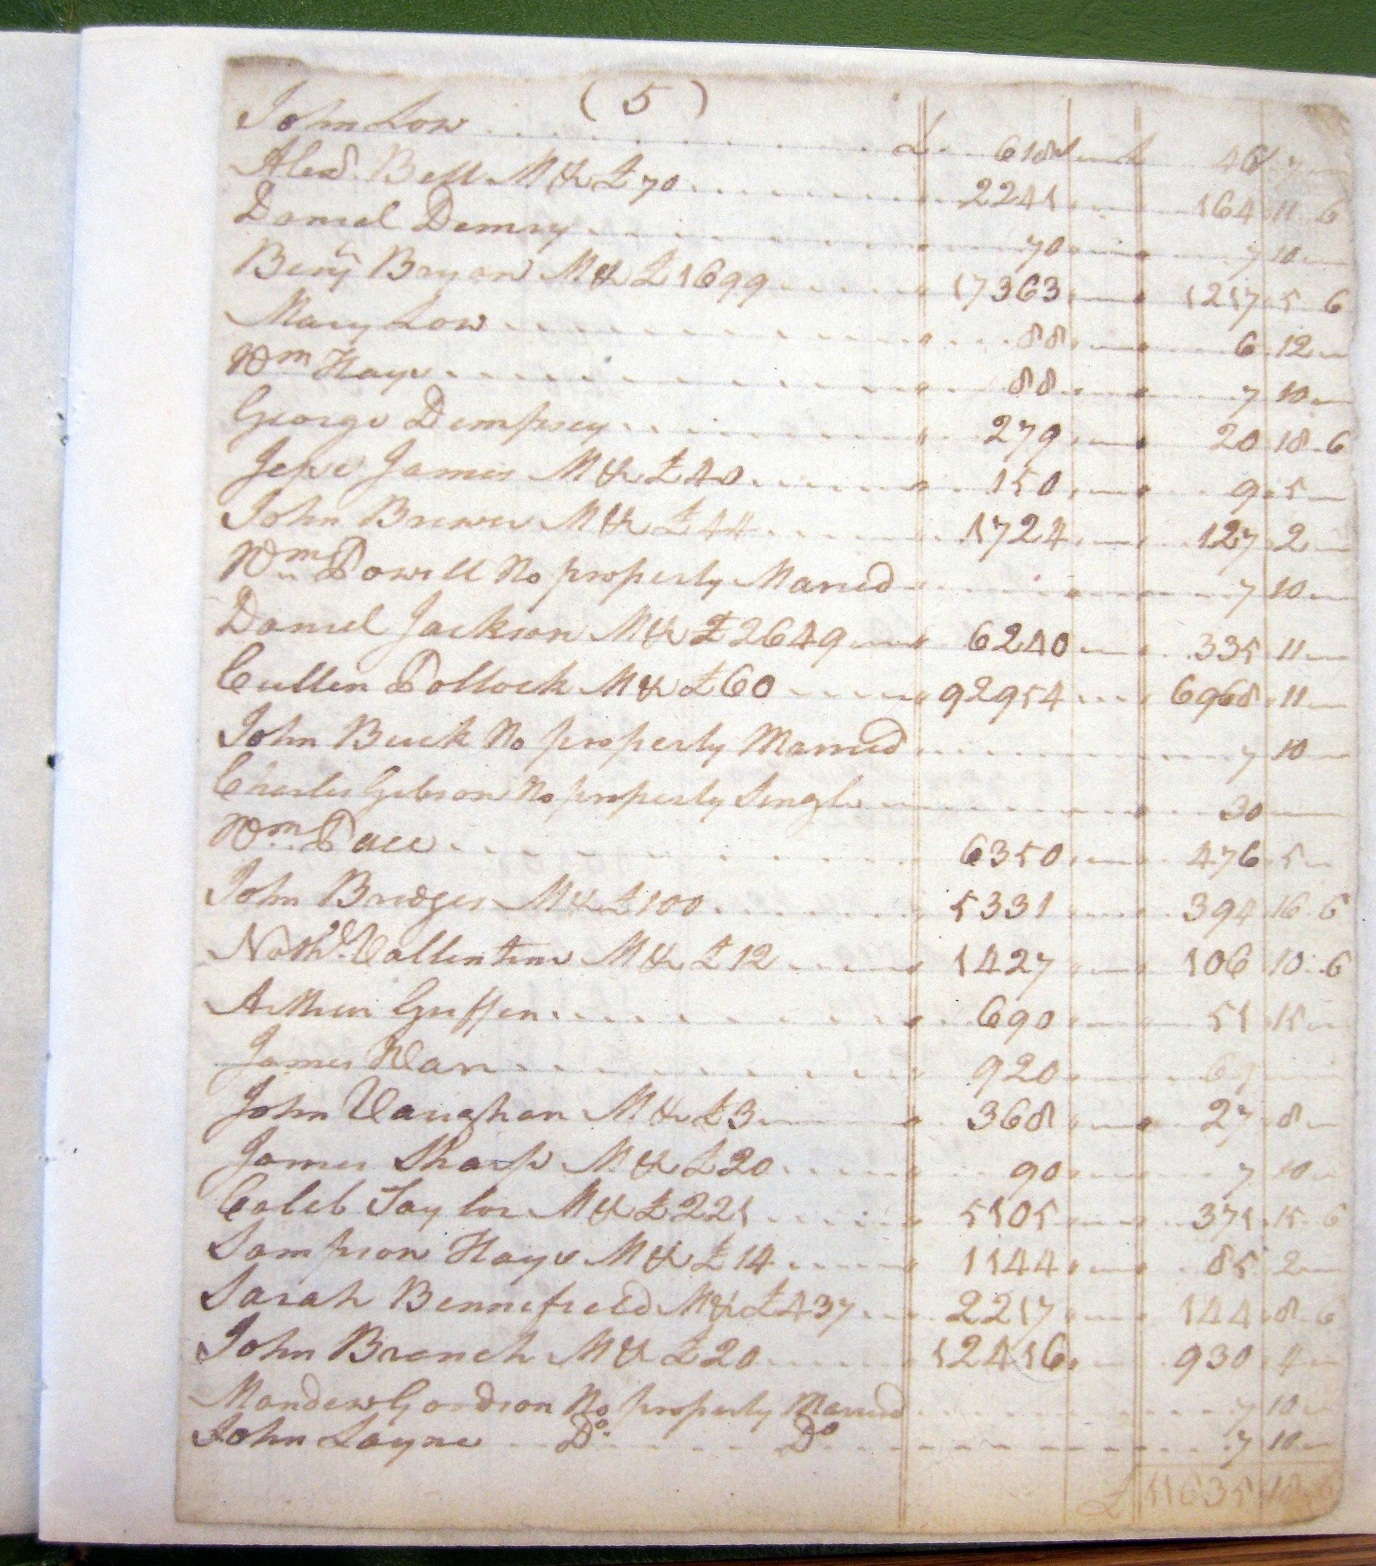 ( 5 )
John Low £ 618 46 7
Alexd. Bell M & £ 70 2241 164 11 6
Daniel Demry 70 7 10
Benjn Bryan M & £ 1699 17363 1217 5 6
Mary Low 88 6 12
Wm Hays 88 7 10
George Dempsey 279 20 18 6
Jesse James M & £ 40 150 9 5
John Brewer M & £ 44 1724 127 2
Wm Powell No property Maried 7 10
Daniel Jackson M & £ 2649 6240 335 11
Cullen Pollock M & £ 60 92954 6968 11
John Buck No property Married 7 10
Charles Gibson No property Single 30
Wm Pace 6350 476 5
John Bridges M & £ 100 5331 394 16 6
Nathl. Vallentine M & £ 12 1427 106 10 6
Arthur Griffin 690 51 15
James Wan 920 69
John Vaughan M & £ 3 368 27 8
James Sharp M & £ 20 90 7 10
Caleb Taylor M & £ 221 5105 371 15 6
Sampson Hays M & £ 14 1144 85 2
Sarah Bennefield M & £ 437 2217 144 8 6
John Branch M & £ 20 12416 930 4
Gordson No property Maried 7 10
John Layne Do. Do 7 10
£ 11635 18 6